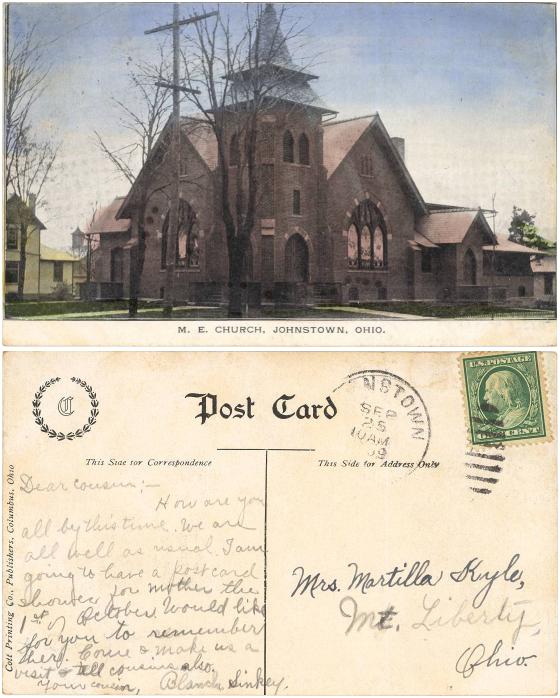 M. E. CHURCH, JOHNSTOWN, OHIO.
C
Post Card
NSTOWN
SEP
25
10AM
09
U.S. POSTAGE
ONE CENT
This Side for Correspondence
This Side for Address Only
Cott Printing Co., Publishers, Columbus, Ohio
Dear cousin;—
How are you
all by this time. We are
all well as usual. I am
going to have a postcard
shower for mother the
1st of October would like
for you to remember
her. Come & make us a
visit & tell cousins also.
Your cousin, Blanch Sinkey.
Mrs. Martilla Kyle,
Mt. Liberty,
Ohio.